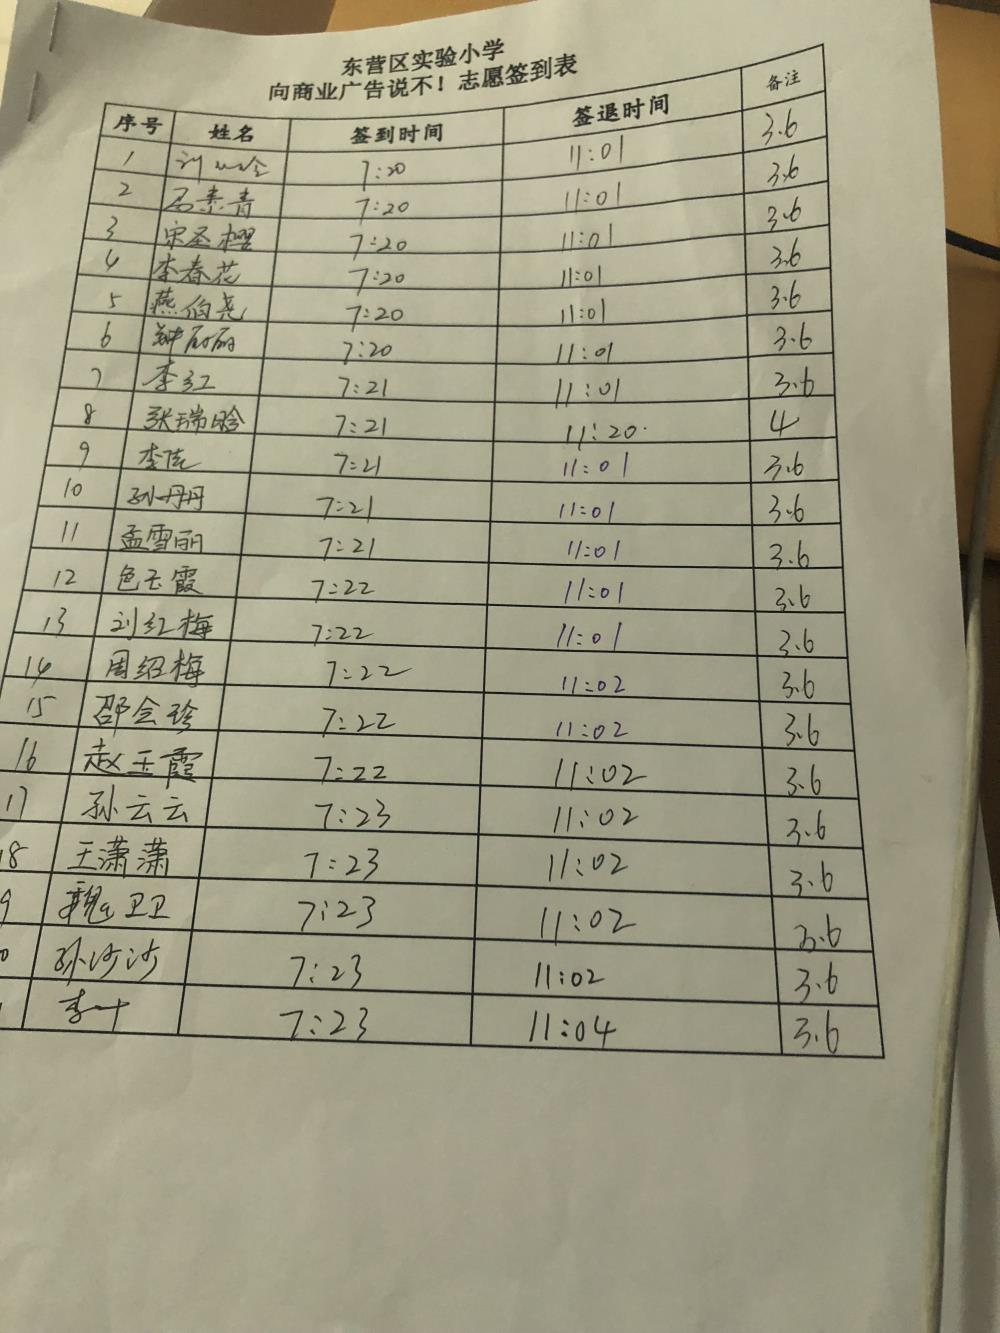 东营区实验小学
向商业广告说不！志愿签到表
序号 姓名 签到时间 签退时间 备注
1 刘 7:20 11:01 3.6
2 石素青 7:20 11:01 3.6
3 宋圣樱 7:20 11:01 3.6
4 李春花 7:20 11:01 3.6
5 燕伯尧 7:20 11:01 3.6
6 钟丽丽 7:20 11:01 3.6
7 李红 7:21 11:01 3.6
8 张瑞晗 7:21 11:20 4
9 李 7:21 11:01 3.6
10 孙丹丹 7:21 11:01 3.6
11 孟雪丽 7:21 11:01 3.6
12 色玉霞 7:22 11:01 3.6
13 刘红梅 7:22 11:01 3.6
14 周绍梅 7:22 11:02 3.6
15 邵会珍 7:22 11:02 3.6
16 赵玉霞 7:22 11:02 3.6
17 孙云云 7:23 11:02 3.6
18 王潇潇 7:23 11:02 3.6
9 魏卫卫 7:23 11:02 3.6
0 孙沙沙 7:23 11:02 3.6
李叶 7:23 11:04 3.6